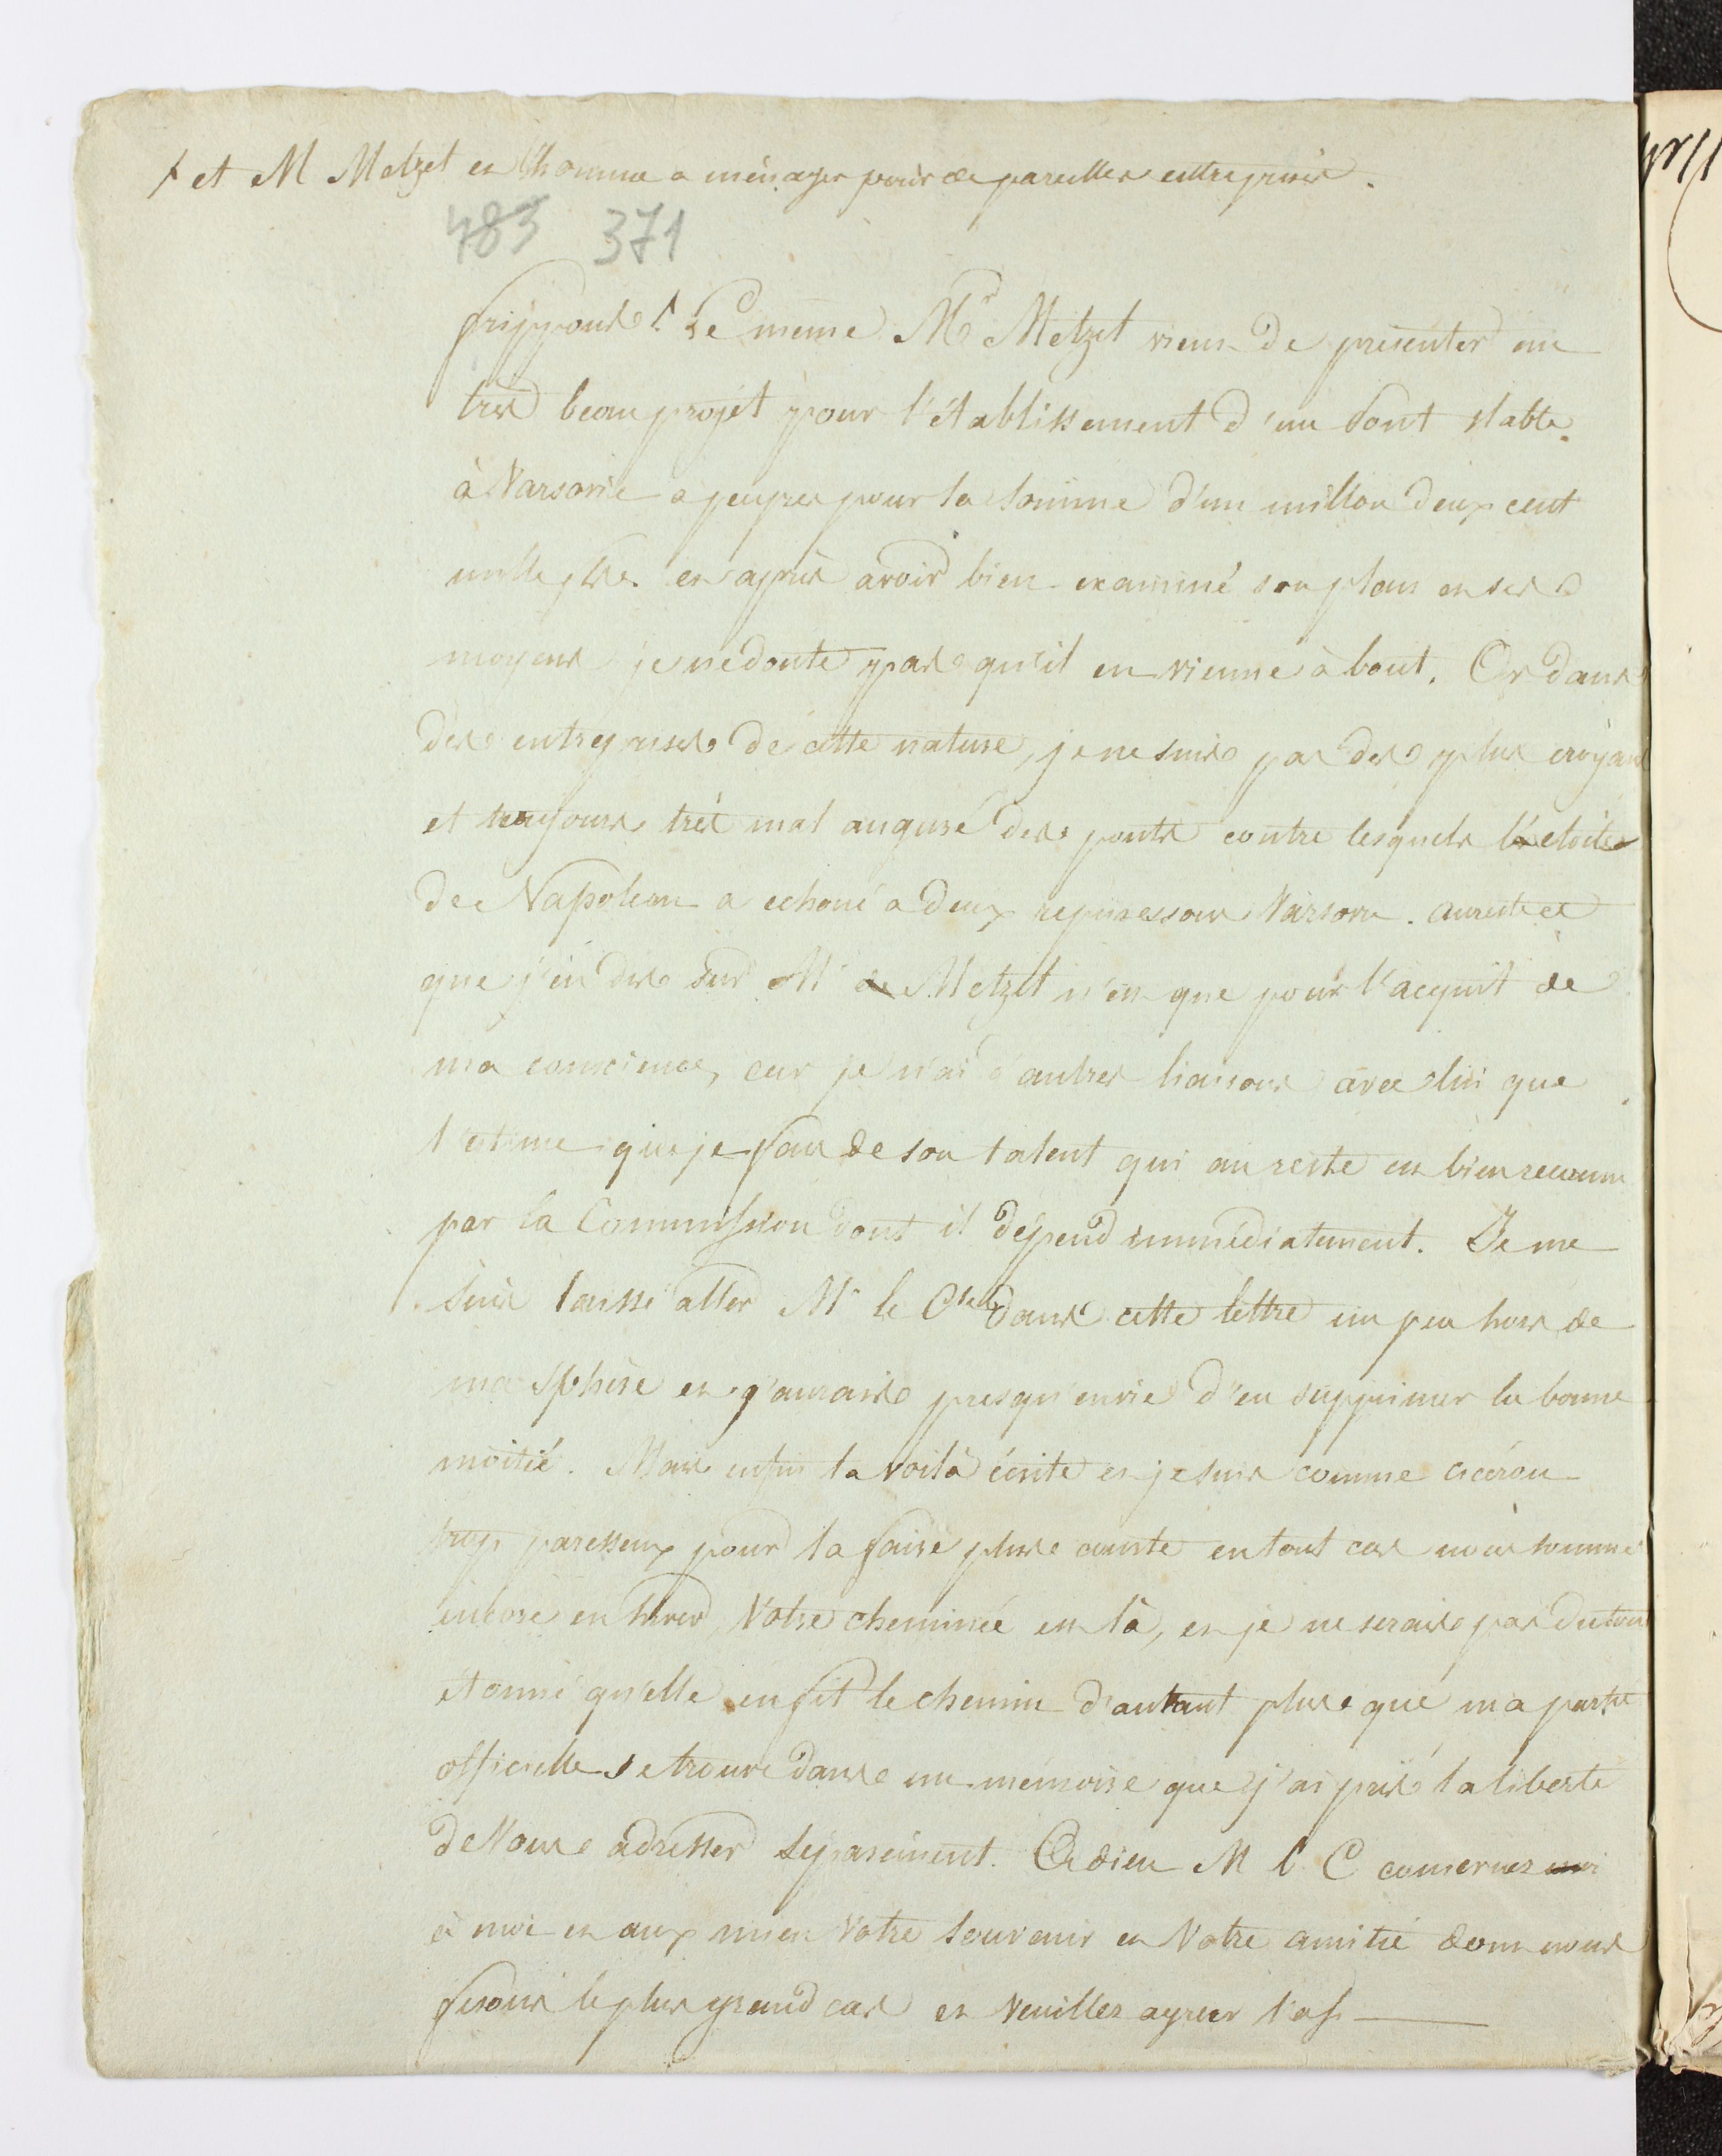 + et M Metzel es l'homme a ménager pour de pareilles entreprises.
483 371
frippons + Le meme Mr Metzel viens de presenter un
tres beau projet pour l'établissement d'un Pont stable
à Varsovie a peupres pour la somme d'un million deux cent
mille es après avoir bien examiné son plan es ses
moyens je ne doute pas qu'il en vienne à bout. Or dans
des entreprises de cette nature, je ne suis pas des plus croyans
et toujours très mal auguré des ponts contre lesquels l'etoile
de Napoleon a echoué a deux reprises sous Varsovie. aureste ce
que j'en dis sur Mr de Metzel n'es que pour l'acquit de
ma conscience, car je n'ai d'autres liaisons avec lui que
l'estime que je fais de son talent qui au reste es bien reconnu
par la Commission dont il dépend immédiatement. Je me
suis laissé aller Mr le Cte dans cette lettre un peu hors de
ma sphère es j'aurais presqu'envie d'en supprimer la bonne
moitié. Mais enfin la voilà écrite es je suis comme cicéron
trop paresseux pour la faire plus courte en tout cas nous sommes
encore en hiver, Votre cheminée es là, es je ne serais pas du tout
étonné qu'elle en fit le chemin d'autant plus que ma partie
officielle se trouve dans un mémoire que j'ai pris la liberté
de Vous adresser séparément. Adieu M l C conservez moi
à moi es aux mien Votre souvenir es Votre amitié dont nous
fesons le plus grand cas es veuillez agreer l'as